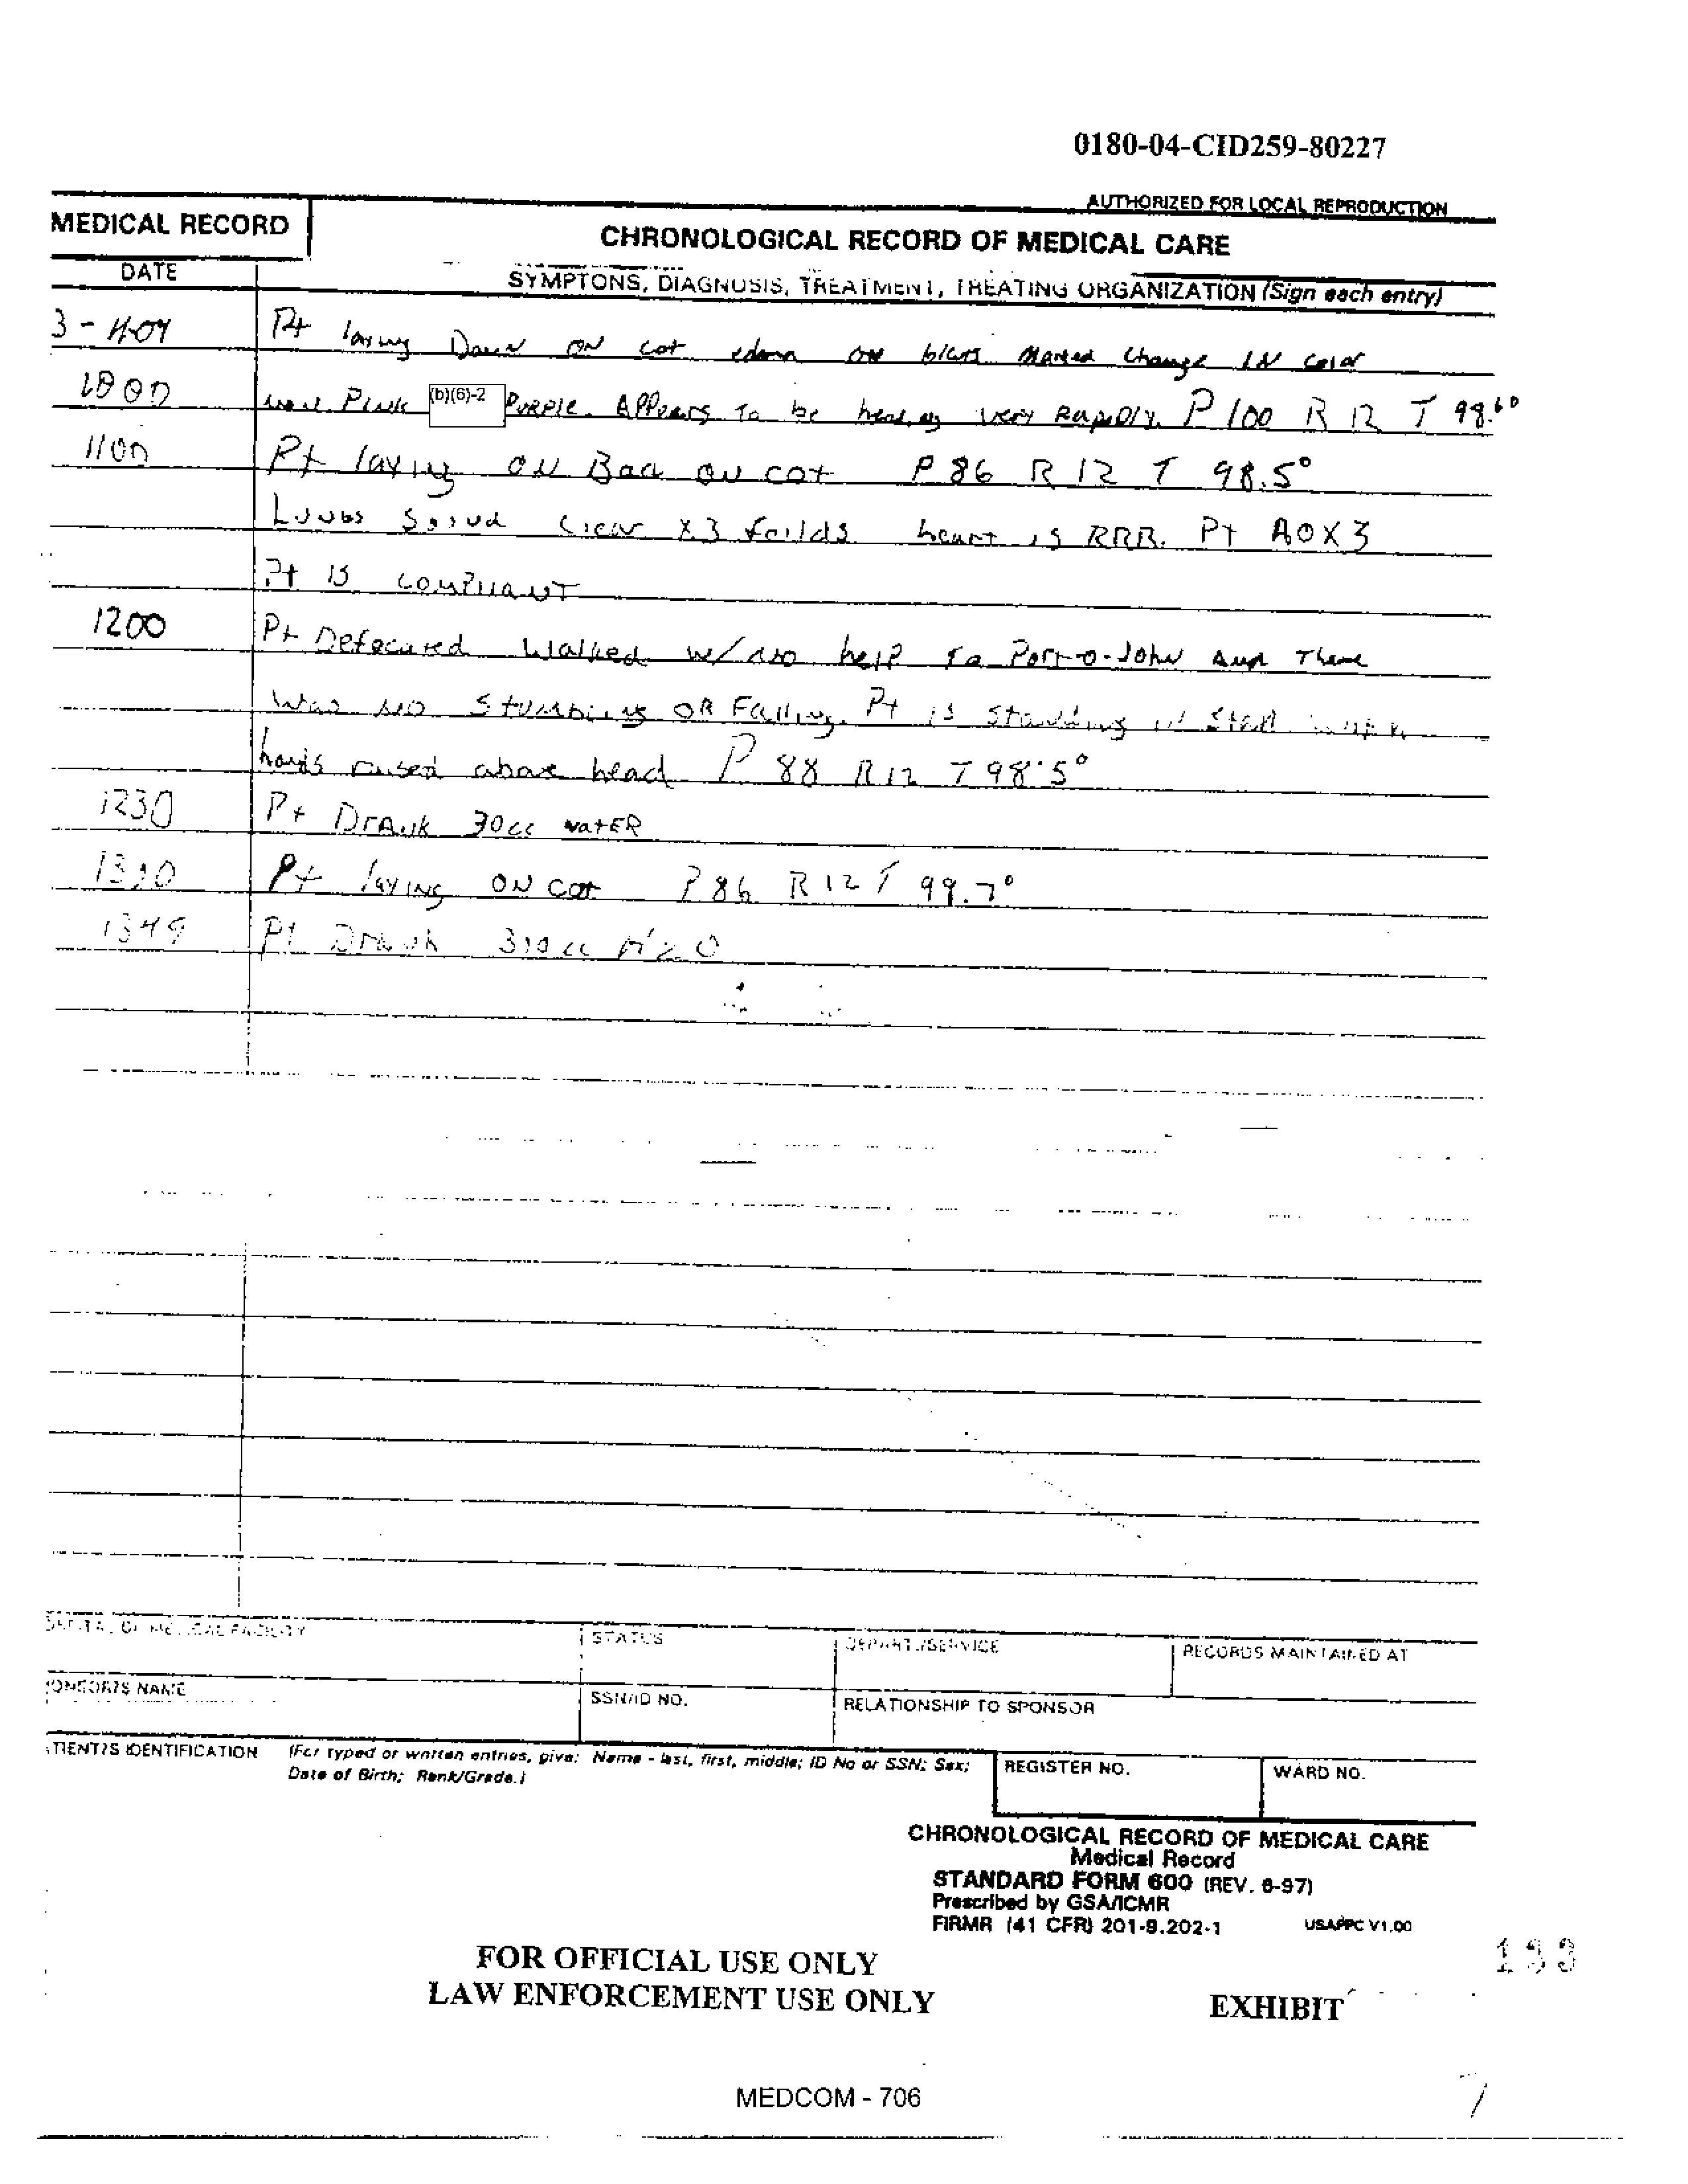 0180-04-CID259-80227
AUTHORIZED FOR LOCAL REPRODUCTION
MEDICAL RECORD
CHRONOLOGICAL RECORD OF MEDICAL CARE
DATE
SYMPTONS, DIAGNOSIS, TREATMENT, TREATING ORGANIZATION (Sign each entry)
Pt laying Down ON cot edema on Marked Change IN Color
Pink (b)(6)-2 PURPLE. APPears To be healing very RapDly. P 100 R 12 T 98.6°
1100 Pt laying ON Back ON cot P 86 R 12 T 98.5°
Lungs Sound Clear X3 feilds heart is RRR. Pt AOX3
Pt is COMPLIANT
1200 Pt Defecated Walked w/ no help To Port-O-John And There
Was NO Stumbling OR Falling. Pt is Standing in Stall
hands raised above head P 88 R12 T 98.5°
1230 Pt Drank 30cc watER
Pt laying ON cot P 86 R 12 T
Pt Drank H2O
STATUS
DEPART./SERVICE
RECORDS MAINTAINED AT
SSN/ID NO.
RELATIONSHIP TO SPONSOR
(For typed or written entries, give: Name - last, first, middle; ID No or SSN; Sex;
Date of Birth; Rank/Grade.)
REGISTER NO.
WARD NO.
CHRONOLOGICAL RECORD OF MEDICAL CARE
Medical Record
STANDARD FORM 600 (REV. 6-97)
Prescribed by GSA/ICMR
FIRMR (41 CFR) 201-9.202-1
USAPPC V1.00
FOR OFFICIAL USE ONLY
LAW ENFORCEMENT USE ONLY
EXHIBIT
MEDCOM - 706